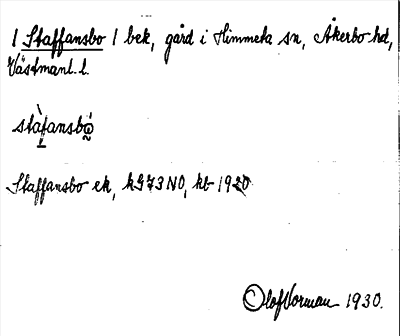 1 Staffansbo / bek, gård i Himmeta sn, Åkerbo hd,
Västmanl. l.
stàfansbó̤
Staffansbo ek, kG73NO, kb 1920
Olof Vorman 1930.